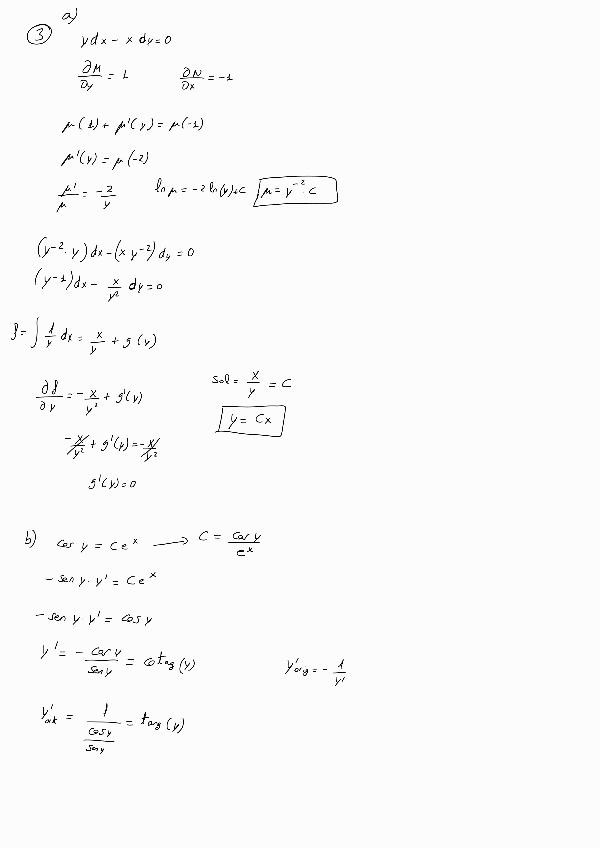 3 a)
y dx - x dy = 0
∂M/∂y = 1 ∂N/∂x = -1
μ(1) + μ'(y) = μ(-1)
μ'(y) = μ(-2)
μ'/μ = -2/y ln μ = -2 ln(y) + C μ = y⁻² · C
(y⁻² · y) dx - (x y⁻²) dy = 0
(y⁻¹) dx - x/y² dy = 0
f = ∫ 1/y dx = x/y + g(y)
∂f/∂y = -x/y² + g'(y) sol = x/y = C
y = Cx
-x/y² + g'(y) = -x/y²
g'(y) = 0
b) cos y = C eˣ → C = cos y/eˣ
- sen y · y' = C eˣ
- sen y y' = cos y
y' = - cos y/sen y = cotag(y) y'ₒᵣg = - 1/y'
y'ₒᵣₜ = 1/(cos y/sen y) = tag(y)